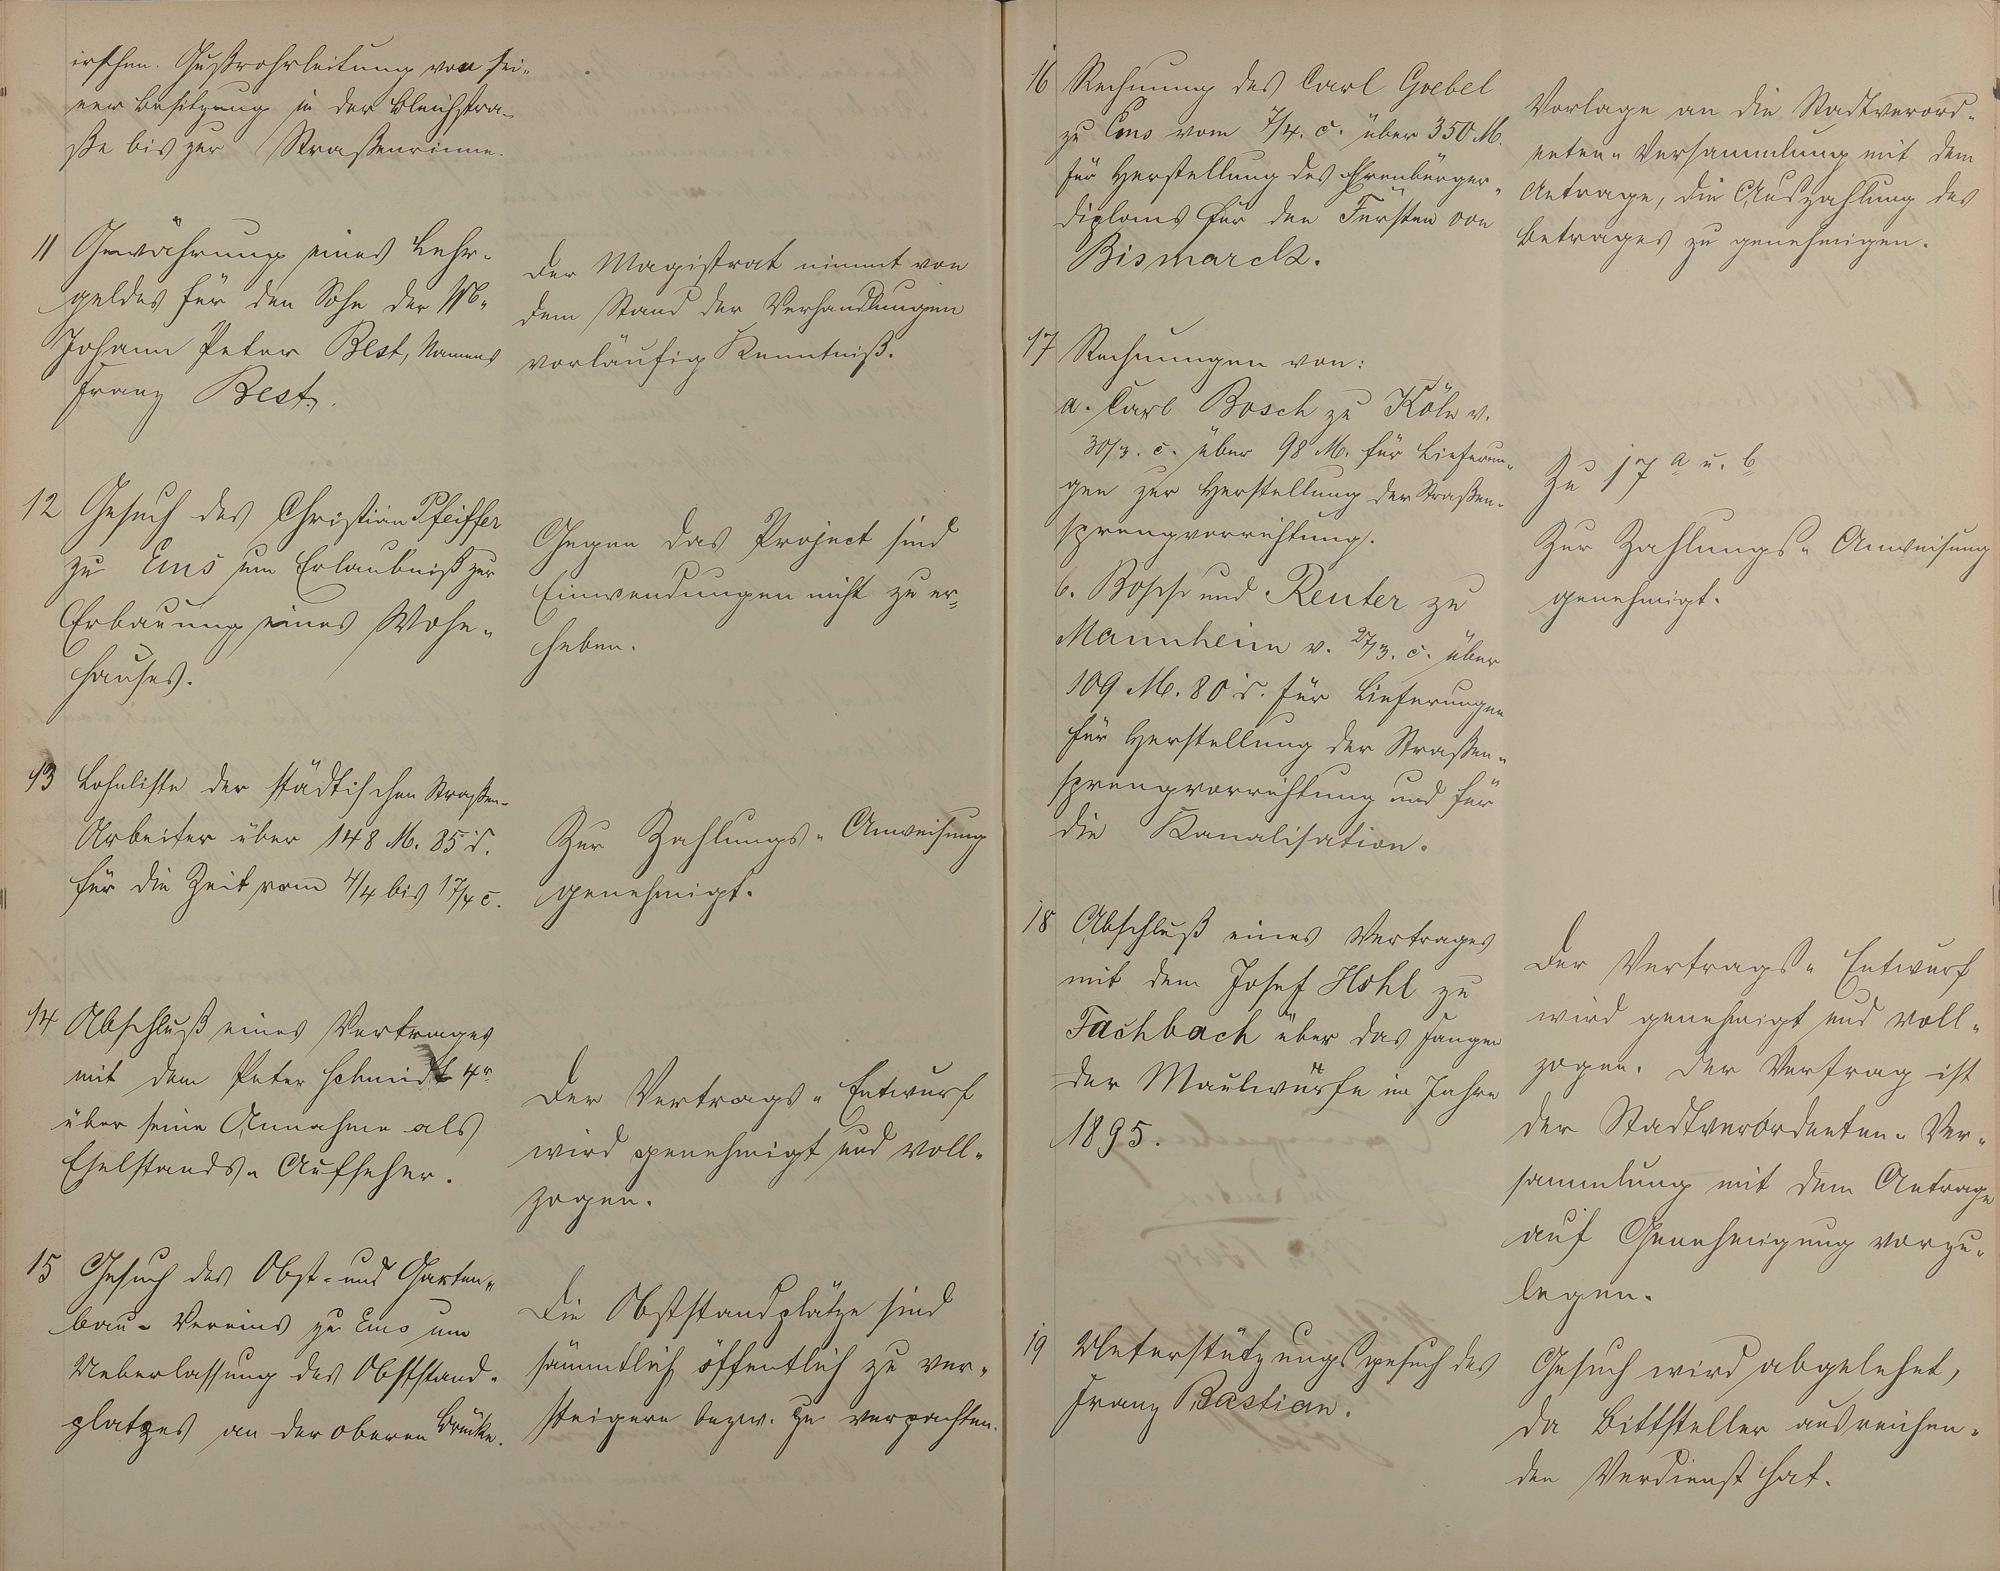 irdschen. Gußrohrleitung von sei-
ner Besitzung in der Bleichstra-
ße bis zur Straßenrinne.
11 Gewährung eines Lehr-
geldes für den Sohn der Wb.
Johann Peter Best, Namens
Franz Best.
Der Magistrat nimmt von
dem Stand der Verhandlungen
vorläufig Kenntniß.
12 Gesuch des Christian Pfeiffer
zu Ems um Erlaubniß zur
Erbauung eines Wohn-
hauses.
Gegen das Project sind
Einwendungen nicht zu er-
heben.
13 Lohnliste der städtischen Straßen-
Arbeiter über 148 M. 85 d.
für die Zeit vom 4/4 bis 17/4 c.
Zur Zahlungs-Anweisung
genehmigt.
14 Abschluß eines Vertrages
mit dem Peter Schmidt 4r
über seine Annahme als
Eselstands-Aufseher.
Der Vertrags-Entwurf
wird genehmigt und voll-
zogen.
15 Gesuch des Obst- und Garten-
bau-Vereins zu Ems um
Ueberlassung des Obststand-
platzes an der oberen Brücke.
Die Obststandplätze sind
sämmtlich öffentlich zu ver-
steigern bezw. zu verpachten.
16 Rechnung des Carl Goebel
zu Ems vom 7/4. c. über 350 M.
für Herstellung des Ehrenbürger-
diploms für den Fürsten von
Bismarck.
Vorlage an die Stadtverord-
neten-Versammlung mit dem
Antrage, die Auszahlung des
Betrages zu genehmigen.
17 Rechnungen von:
a. Carl Bosch zu Köln v.
30/3. c. über 98 M. für Lieferun-
gen zur Herstellung der Straßen-
sprengvorrichtung.
b. Bopp und Reuter zu
Mannheim v. 27/3. c. über
109 M. 80 d. für Lieferungen
für Herstellung der Straßen-
sprengvorrichtung und für
die Kanalisation.
Zu 17 a u. b
Zur Zahlungs-Anweisung
genehmigt.
18 Abschluß eines Vertrages
mit dem Josef Hohl zu
Fachbach über das Fangen
der Maulwürfe im Jahre
1895.
Der Vertrags-Entwurf
wird genehmigt und voll-
zogen. Der Vertrag ist
der Stadtverordneten-Ver-
sammlung mit dem Antrage
auf Genehmigung vorzu-
legen.
19 Unterstützungsgesuch des
Franz Bastian.
Gesuch wird abgelehnt,
da Bittsteller ausreichen-
den Verdienst hat.